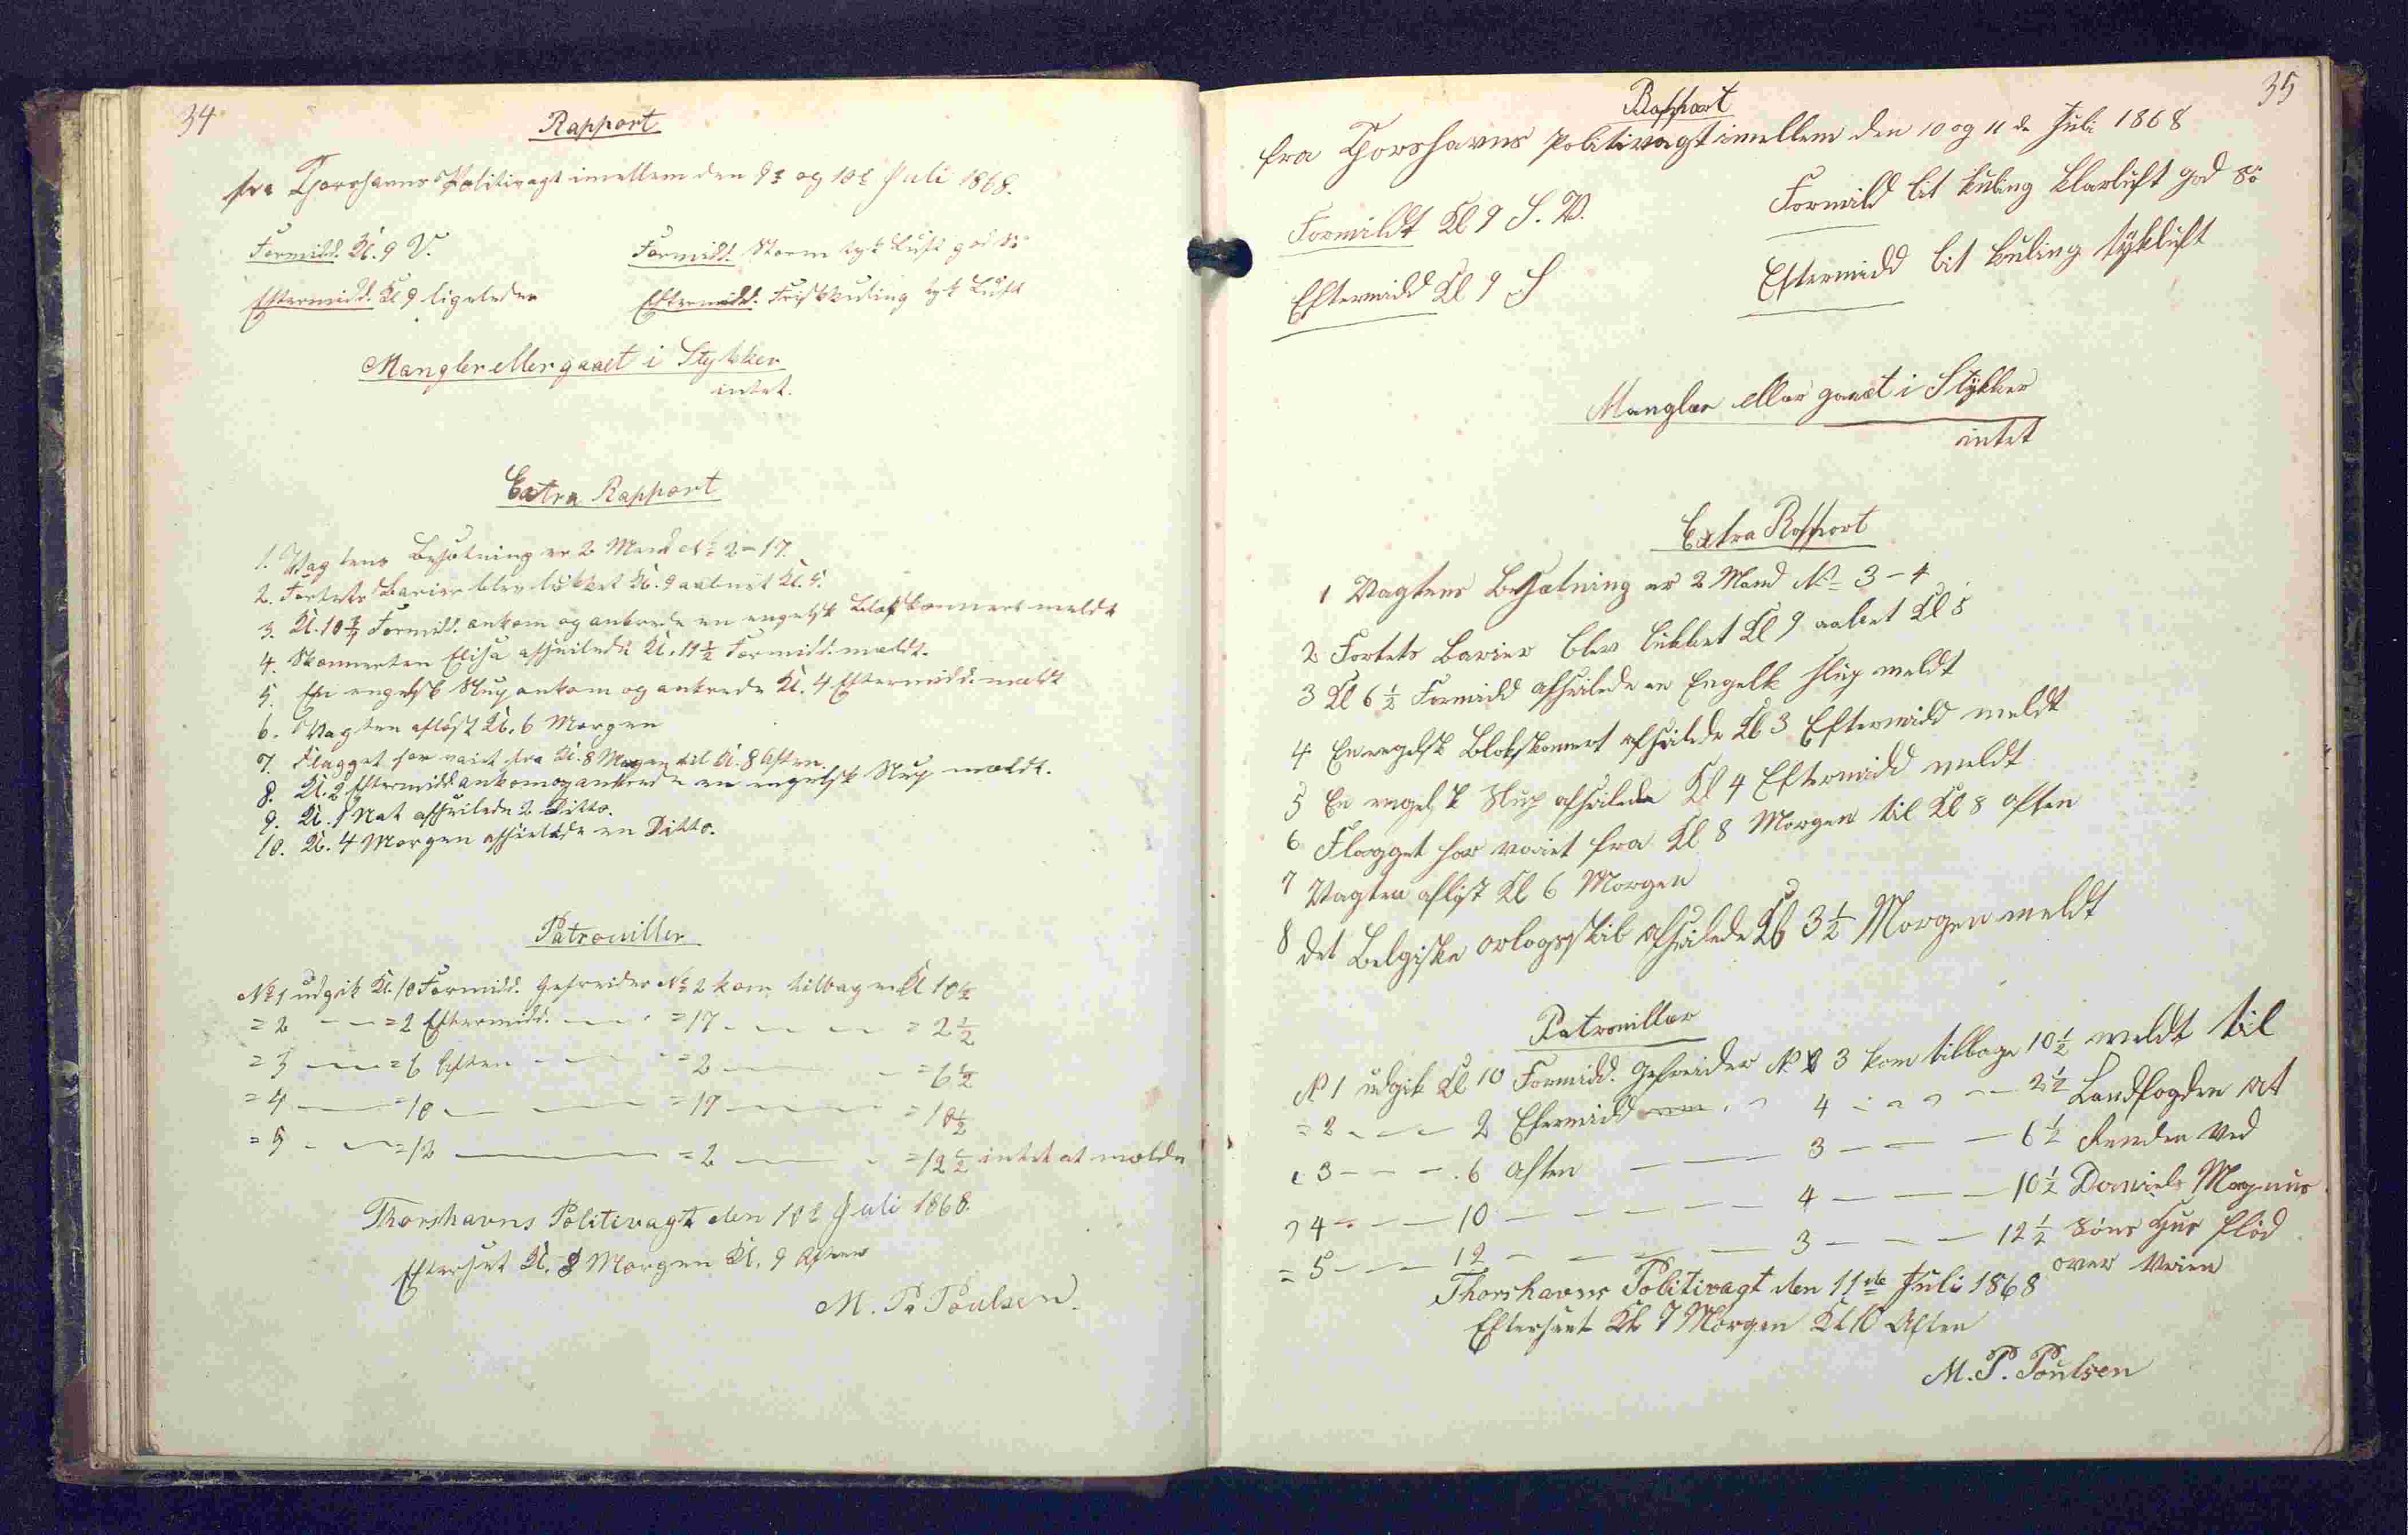 34
Rapport
fra Thorshavns Politivagt imellem den 9de og 10de Juli 1868.
Formidd. Kl. 9 V. Formidd. Storm tyk Luft god Sö
Eftermidd. Kl 9 ligeledes Eftermidd. Friskkuling tyk Luft
Mangler eller gaaet i Stykker
intet.
Extra Rapport
1. Vagtens Besætning er 2 Mand No 2 - 17.
2. Fortets Barier blev lukket Kl. 9 aabnet Kl. 5.
3. Kl. 10 3/4 Formidd. ankom og ankrede en engelsk Blokskonnert meldt
4. Skonnerten Elisa afseilede Kl. 11 1/2 Formidd. meldt.
5. En engelsk Slup ankom og ankrede Kl. 4 Eftermidd. meldt
6. Vagten aflöst Kl. 6 Morgen
7. Flagget har vaiet fra Kl. 8 Morgen til Kl. 8 Aften.
8. Kl. 2 Eftermidd ankom og ankrede en engelsk Slup meldt.
9. Kl. 1 Nat afseilede 2 Ditto.
10. Kl. 4 Morgen afseilede en Ditto.
Patrouiller
No 1 udgik Kl. 10 Formidd. Gefreider No 2 kom tilbage Kl 10 1/2
= 2 — — = 2 Eftermidd. — — = 17 — — — = 2 1/2
= 3 — — = 6 Aften — — = 2 — — = 6 1/2
= 4 — — = 10 — — — = 17 — — — = 10 1/2
= 5 — — = 12 — — = 2 — — = 12 1/2 intet at melde
Thorshavns Politivagt den 10de Juli 1868.
Efterseet Kl. 8 Morgen Kl. 9 Aften
M. P. Poulsen.
35
Rapport
fra Thorshavns Politivagt imellem den 10 og 11 de Juli 1868
Formidt Kl 9 S. V. Formidd lit kuling klarluft god Sö
Eftermidd Kl 9 S Eftermidd lit kuling tykluft
Mangler eller gaaet i Stykker
intet
Extra Rapport
1 Vagtens Besætning er 2 Mand No 3 - 4
2 Fortets Barier blev lukket Kl 9 aabnet Kl 5
3 Kl 6 1/2 Formidd afseilede en Engelk Slup meldt
4 En engelsk Blokskonnert afseilede Kl 3 Eftermidd meldt
5 En engelsk Slup afseilede Kl 4 Eftermidd meldt
6 Flagget har vaiet fra Kl 8 Morgen til Kl 8 aften
7 Vagten aflöst Kl 6 Morgen
8 det Belgiske orlogsskib afseilede Kl 3 1/2 Morgen meldt
Patrouiller
No 1 udgik Kl 10 Formidd. Gefreider No 3 kom tilbage 10 1/2 meldt til
= 2 — — — 2 Eftermidd — 4 — — — 2 1/2 Landfogden at
= 3 — — — 6 Aften — — 3 — — — 6 1/2 Renden ved
= 4 — — — 10 — — — — 4 — — — 10 1/2 Daniels Magnus
= 5 — — — 12 — — — — 3 — — — 12 1/2 Söns Hus flöd
over Veien
Thorshavns Politivagt den 11te Juli 1868
Efterseet Kl 7 Morgen Kl 10 Aften
M. P. Poulsen